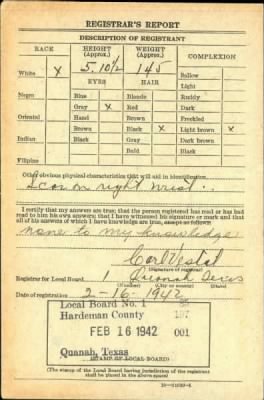 REGISTRAR'S REPORT
DESCRIPTION OF REGISTRANT
RACE HEIGHT (Approx.) WEIGHT (Approx.) COMPLEXION
White X 5.10½ 145 Sallow
EYES HAIR Light
Negro Blue Blonde Ruddy
Gray X Red Dark
Oriental Hazel Brown Freckled
Brown Black X Light brown X
Indian Black Gray Dark brown
Bald Black
Filipino
Other obvious physical characteristics that will aid in identification
Scar on right wrist
I certify that my answers are true; that the person registered has read or has had
read to him his own answers; that I have witnessed his signature or mark and that
all of his answers of which I have knowledge are true, except as follows:
none to my knowledge
Carl Vestal
(Signature of registrar)
Registrar for Local Board 1 Quanah Texas
(Number) (City or county) (State)
Date of registration 2-16 1942
Local Board No. 1
Hardeman County 197
FEB 16 1942 001
Quanah, Texas
(STAMP OF LOCAL BOARD)
(The stamp of the Local Board having jurisdiction of the registrant
shall be placed in the above space)